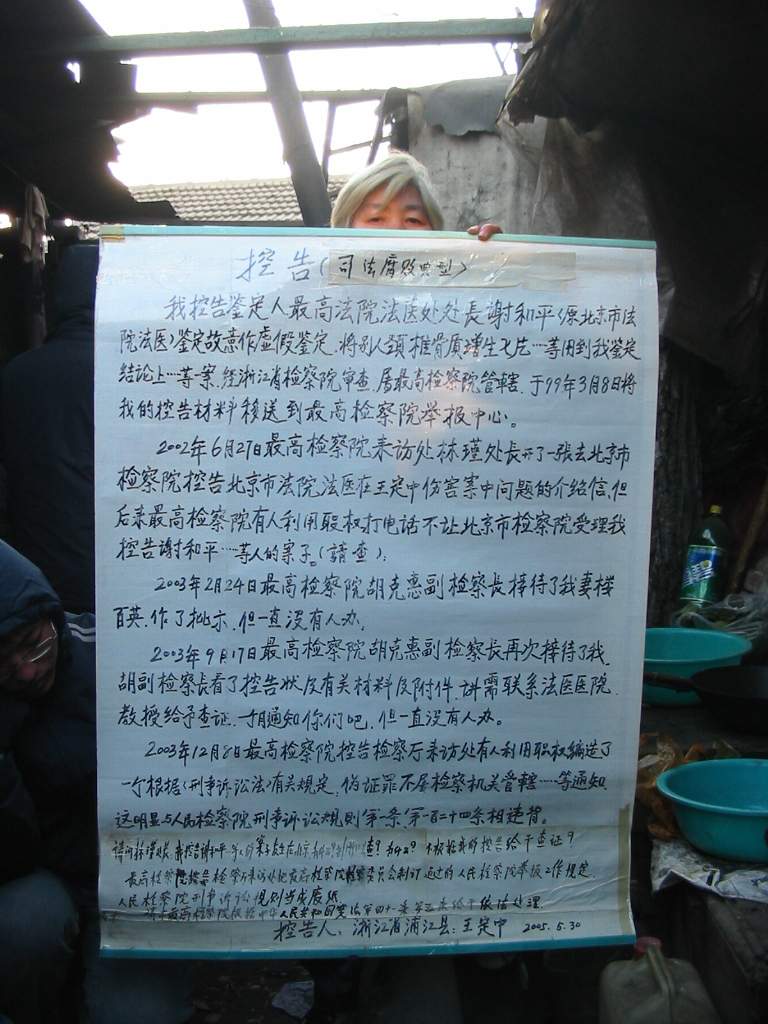 控告（司法腐败典型）
我控告鉴定人最高法院法医处处長謝和平（原北京市法
院法医）鉴定故意作虚假鉴定，将别人頸推骨质增生X片……等用到我鉴定
结论上…等一案，经浙江省检察院审查，居最高检察院管轄，于99年3月8日将
我的控告材料移送到最高检察院举报中心。
2002年6月27日最高检察院来访处林瑾处長开了一張去北京市
检察院控告北京市法院法医在王定中伤害案中问题的介绍信，但
后来最高检察院有人利用职权打电话不让北京市检察院受理我
控告謝和平……等人的案子。（請查）；
2003年2月24日最高检察院胡克惠副检察長接待了我妻楼
百英，作了批示，但一直沒有人办，
2003年9月17日最高检察院胡克惠副检察長再次接待了我，
胡副检察長看了控告状及有关材料及附件，讲需联系法医医院
教授给予查证，一月通知你们吧，但一直没有人办。
2003年12月8日最高检察院控告检察厅来访处有人利用职权编造了
一个根据《刑事诉讼法》有关规定，伪证罪不属检察机关管轄……等通知，
这明显与人民检察院刑事诉讼规则第一条，第一百二十四条相违背。
控告给予查证？
最高检察院控告检察厅来访处把最高检察院检察委员会制订通过的人民检察院举报工作规定，
人民检察院刑事诉讼规则当成废纸
人民共和国宪法第四十一条第三款给予依法处理
控告人：浙江省浦江县：王定中 2005.5.30